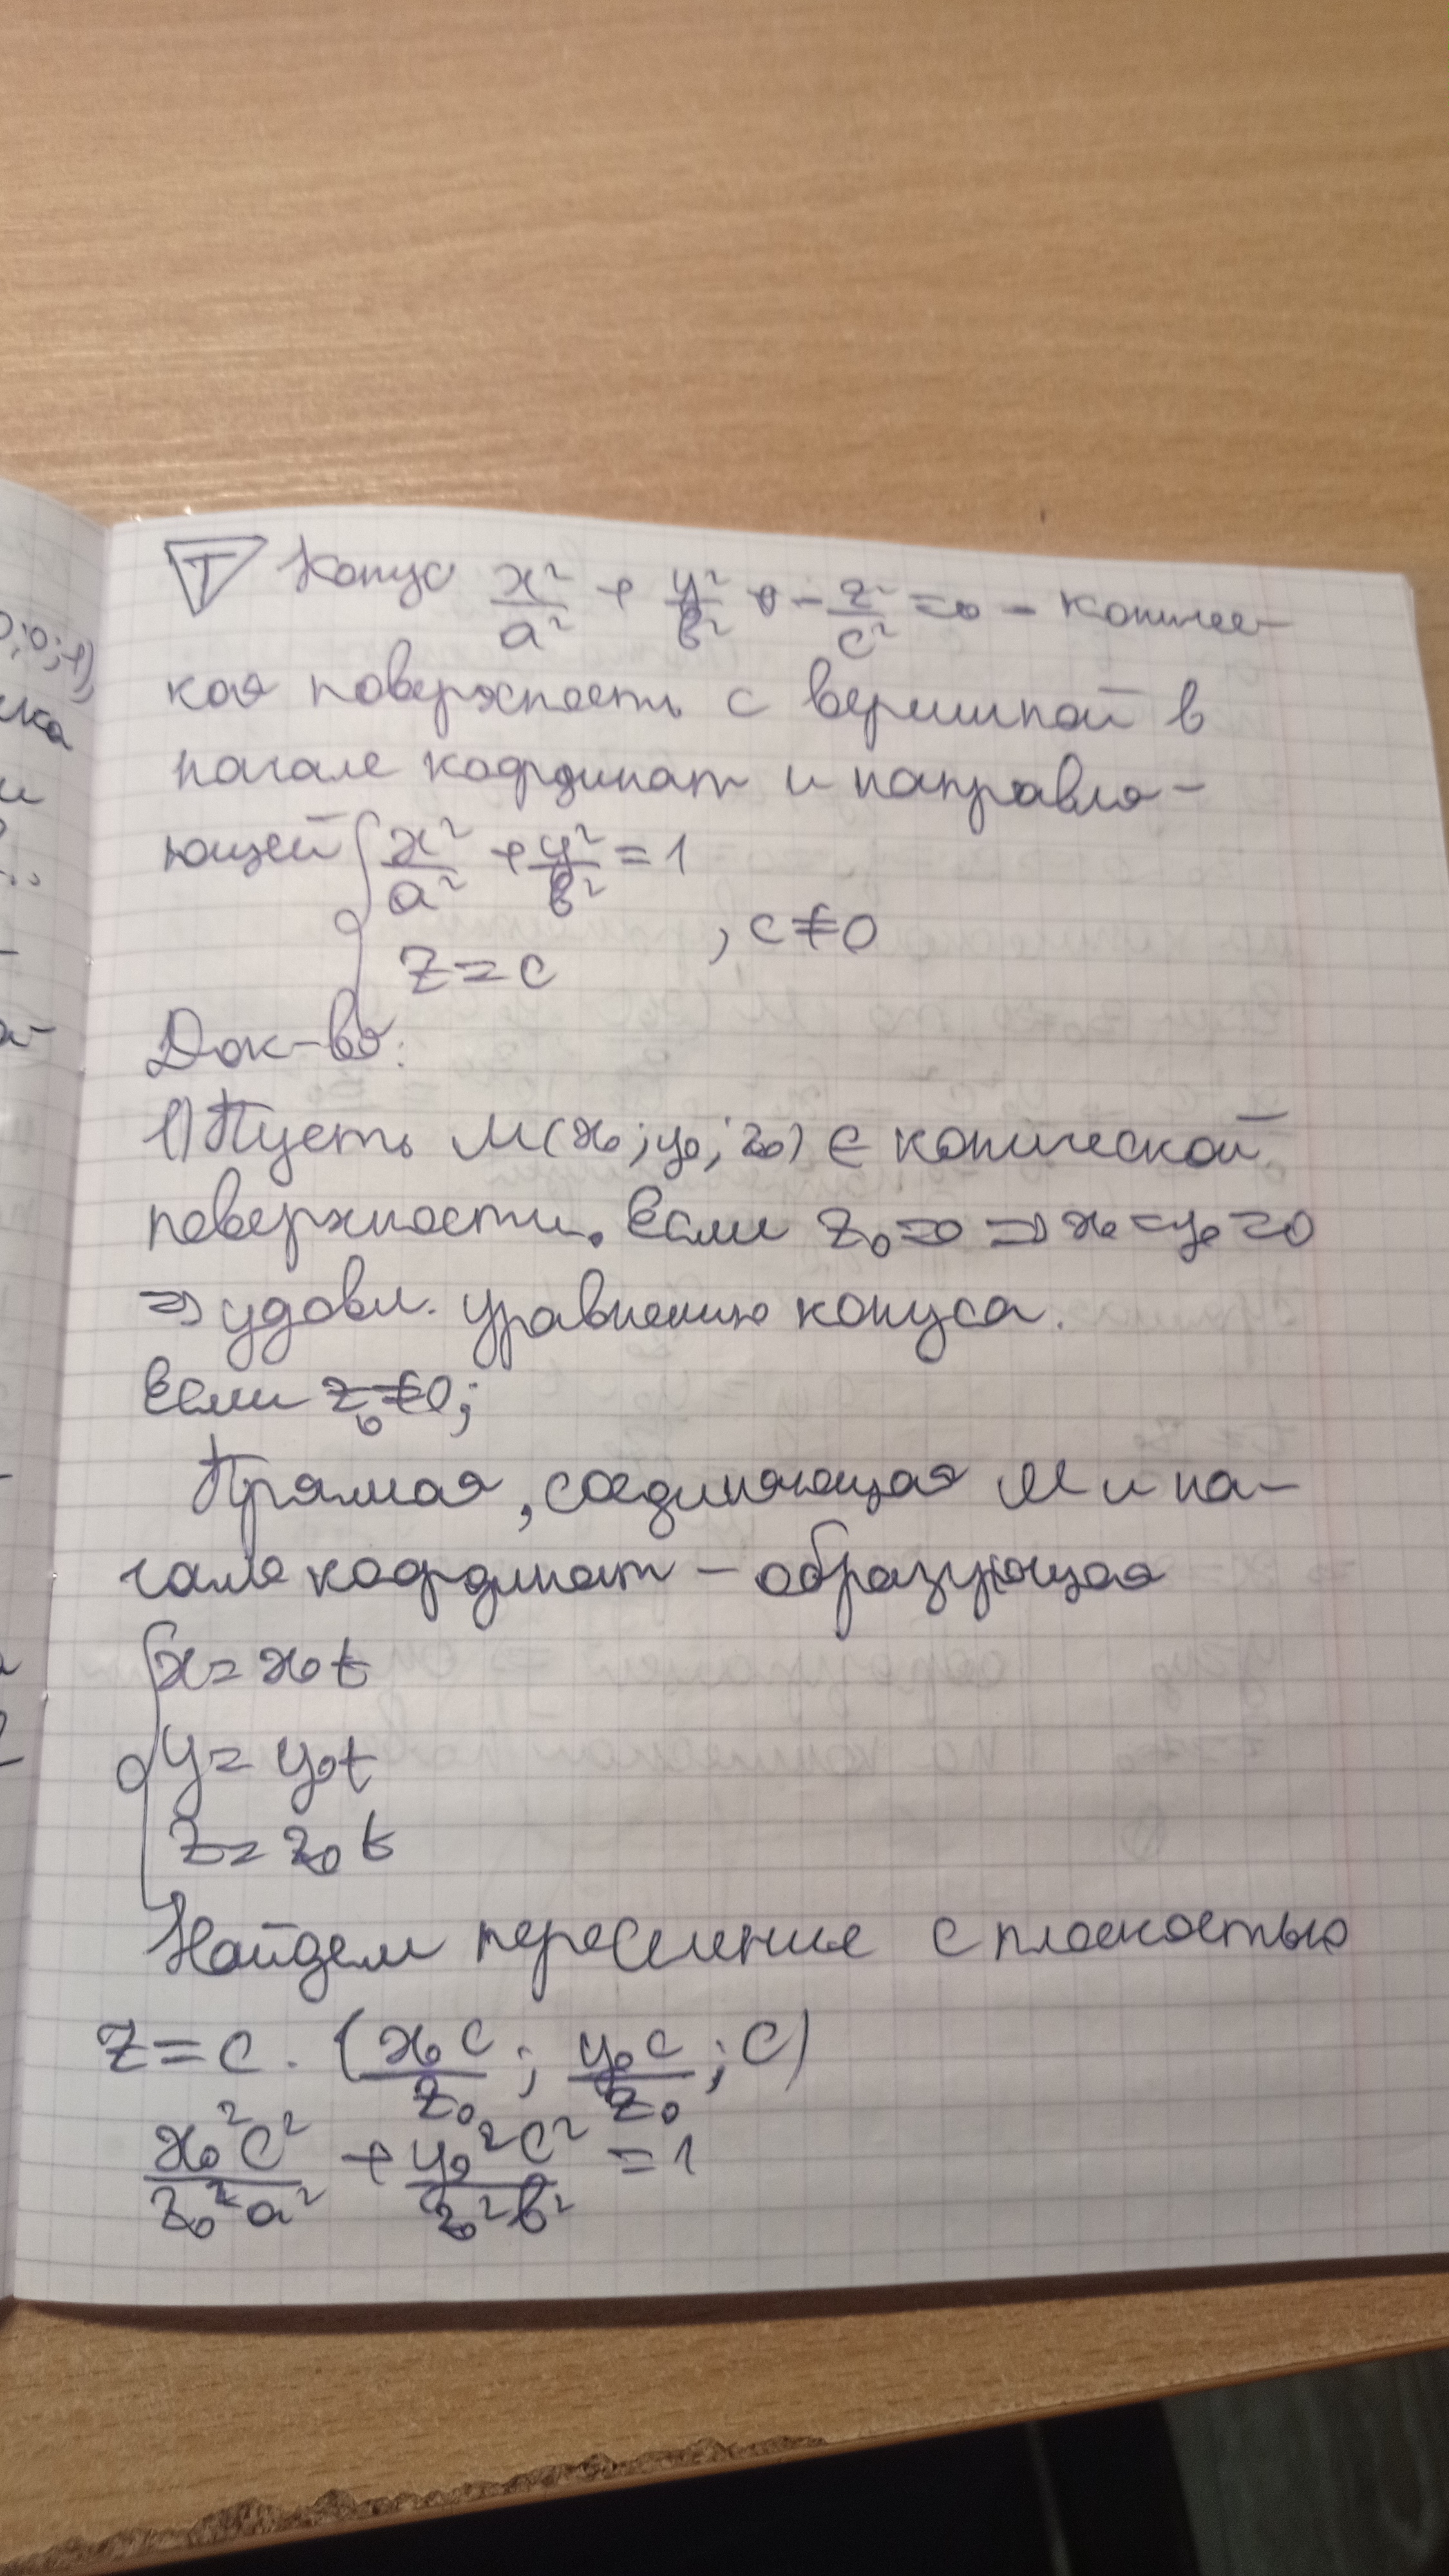 0;0;1)
ска
и
Т Конус x²/a² + y²/b² - z²/c² = 0 - кониче-
кая поверхность с вершиной в
начале координат и направля-
ющей { x²/a² + y²/b² = 1
z = c , c ≠ 0
Док-во:
1) Пусть M(x₀; y₀; z₀) ∈ конической
поверхности. Если z₀ = 0 ⇒ x₀ = y₀ = 0
⇒ удовл. уравнению конуса.
Если z₀ ≠ 0;
Прямая, соединяющая M и на-
чале координат – образующая
{ x = x₀t
y = y₀t
z = z₀t
Найдем пересечение с плоскостью
z = c. (x₀c/z₀; y₀c/z₀; c)
x₀²c²/z₀²a² + y₀²c²/z₀²b² = 1